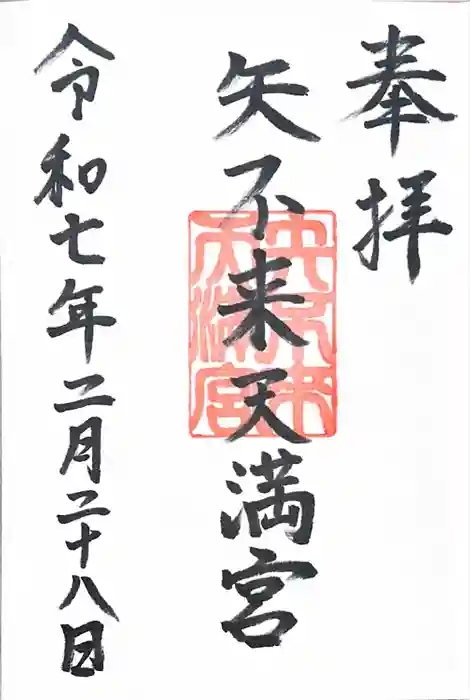 奉拝
矢不来天満宮
矢不来天満宮
令和七年二月二十八日